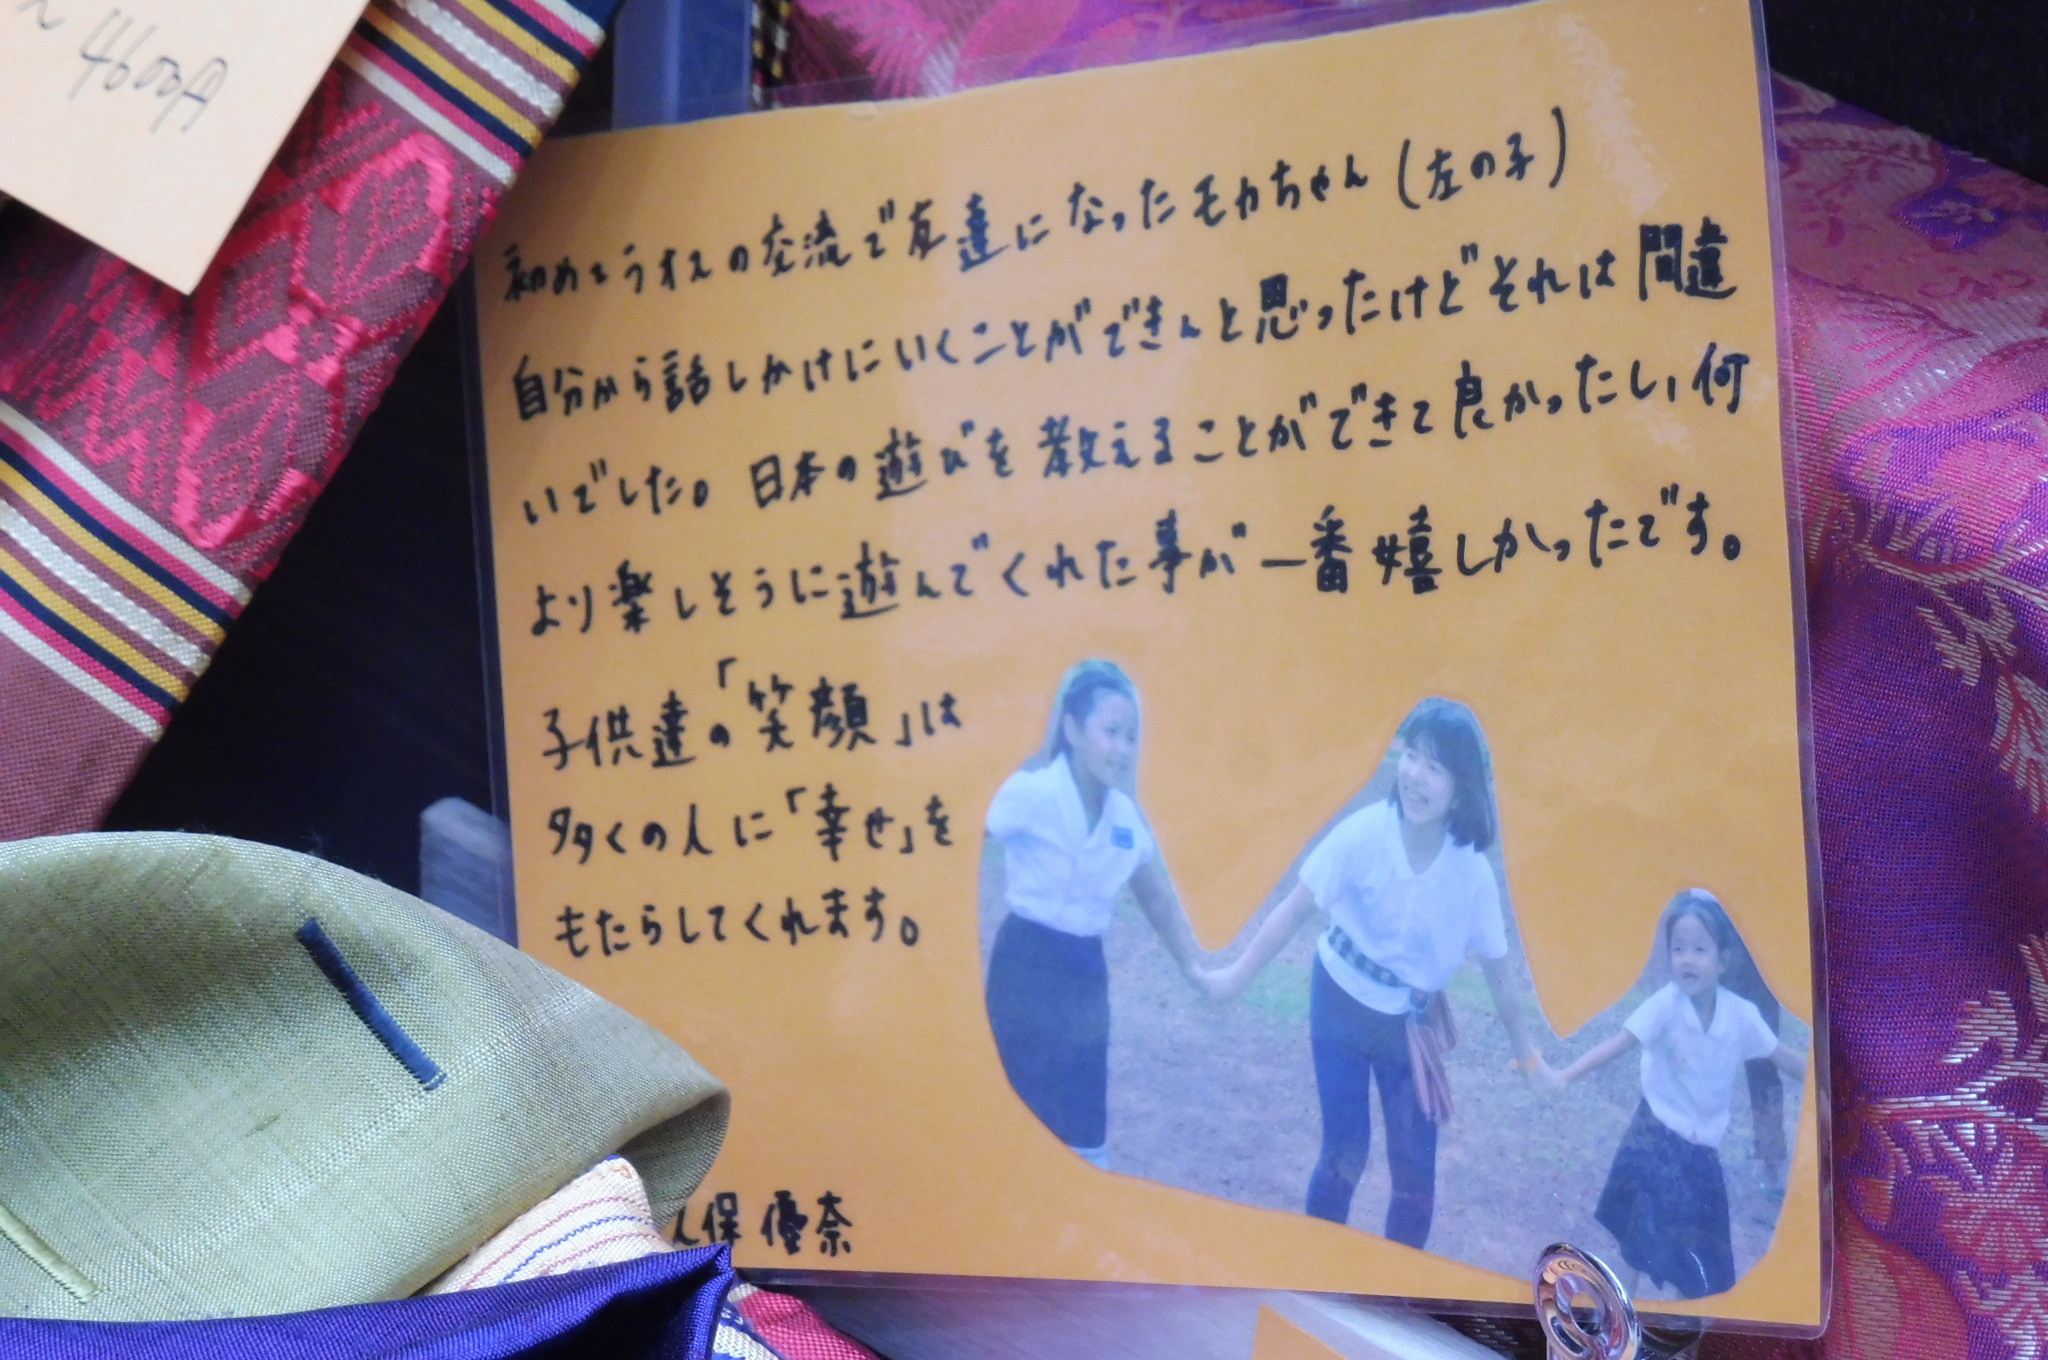 4600円
初めてラオスの交流で友達になったモカちゃん(左の子)
自分から話しかけにいくことができんと思ったけどそれは間違
いでした。日本の遊びを教えることができて良かったし、何
より楽しそうに遊んでくれた事が一番嬉しかったです。
子供達の「笑顔」は
多くの人に「幸せ」を
もたらしてくれます。
保優奈